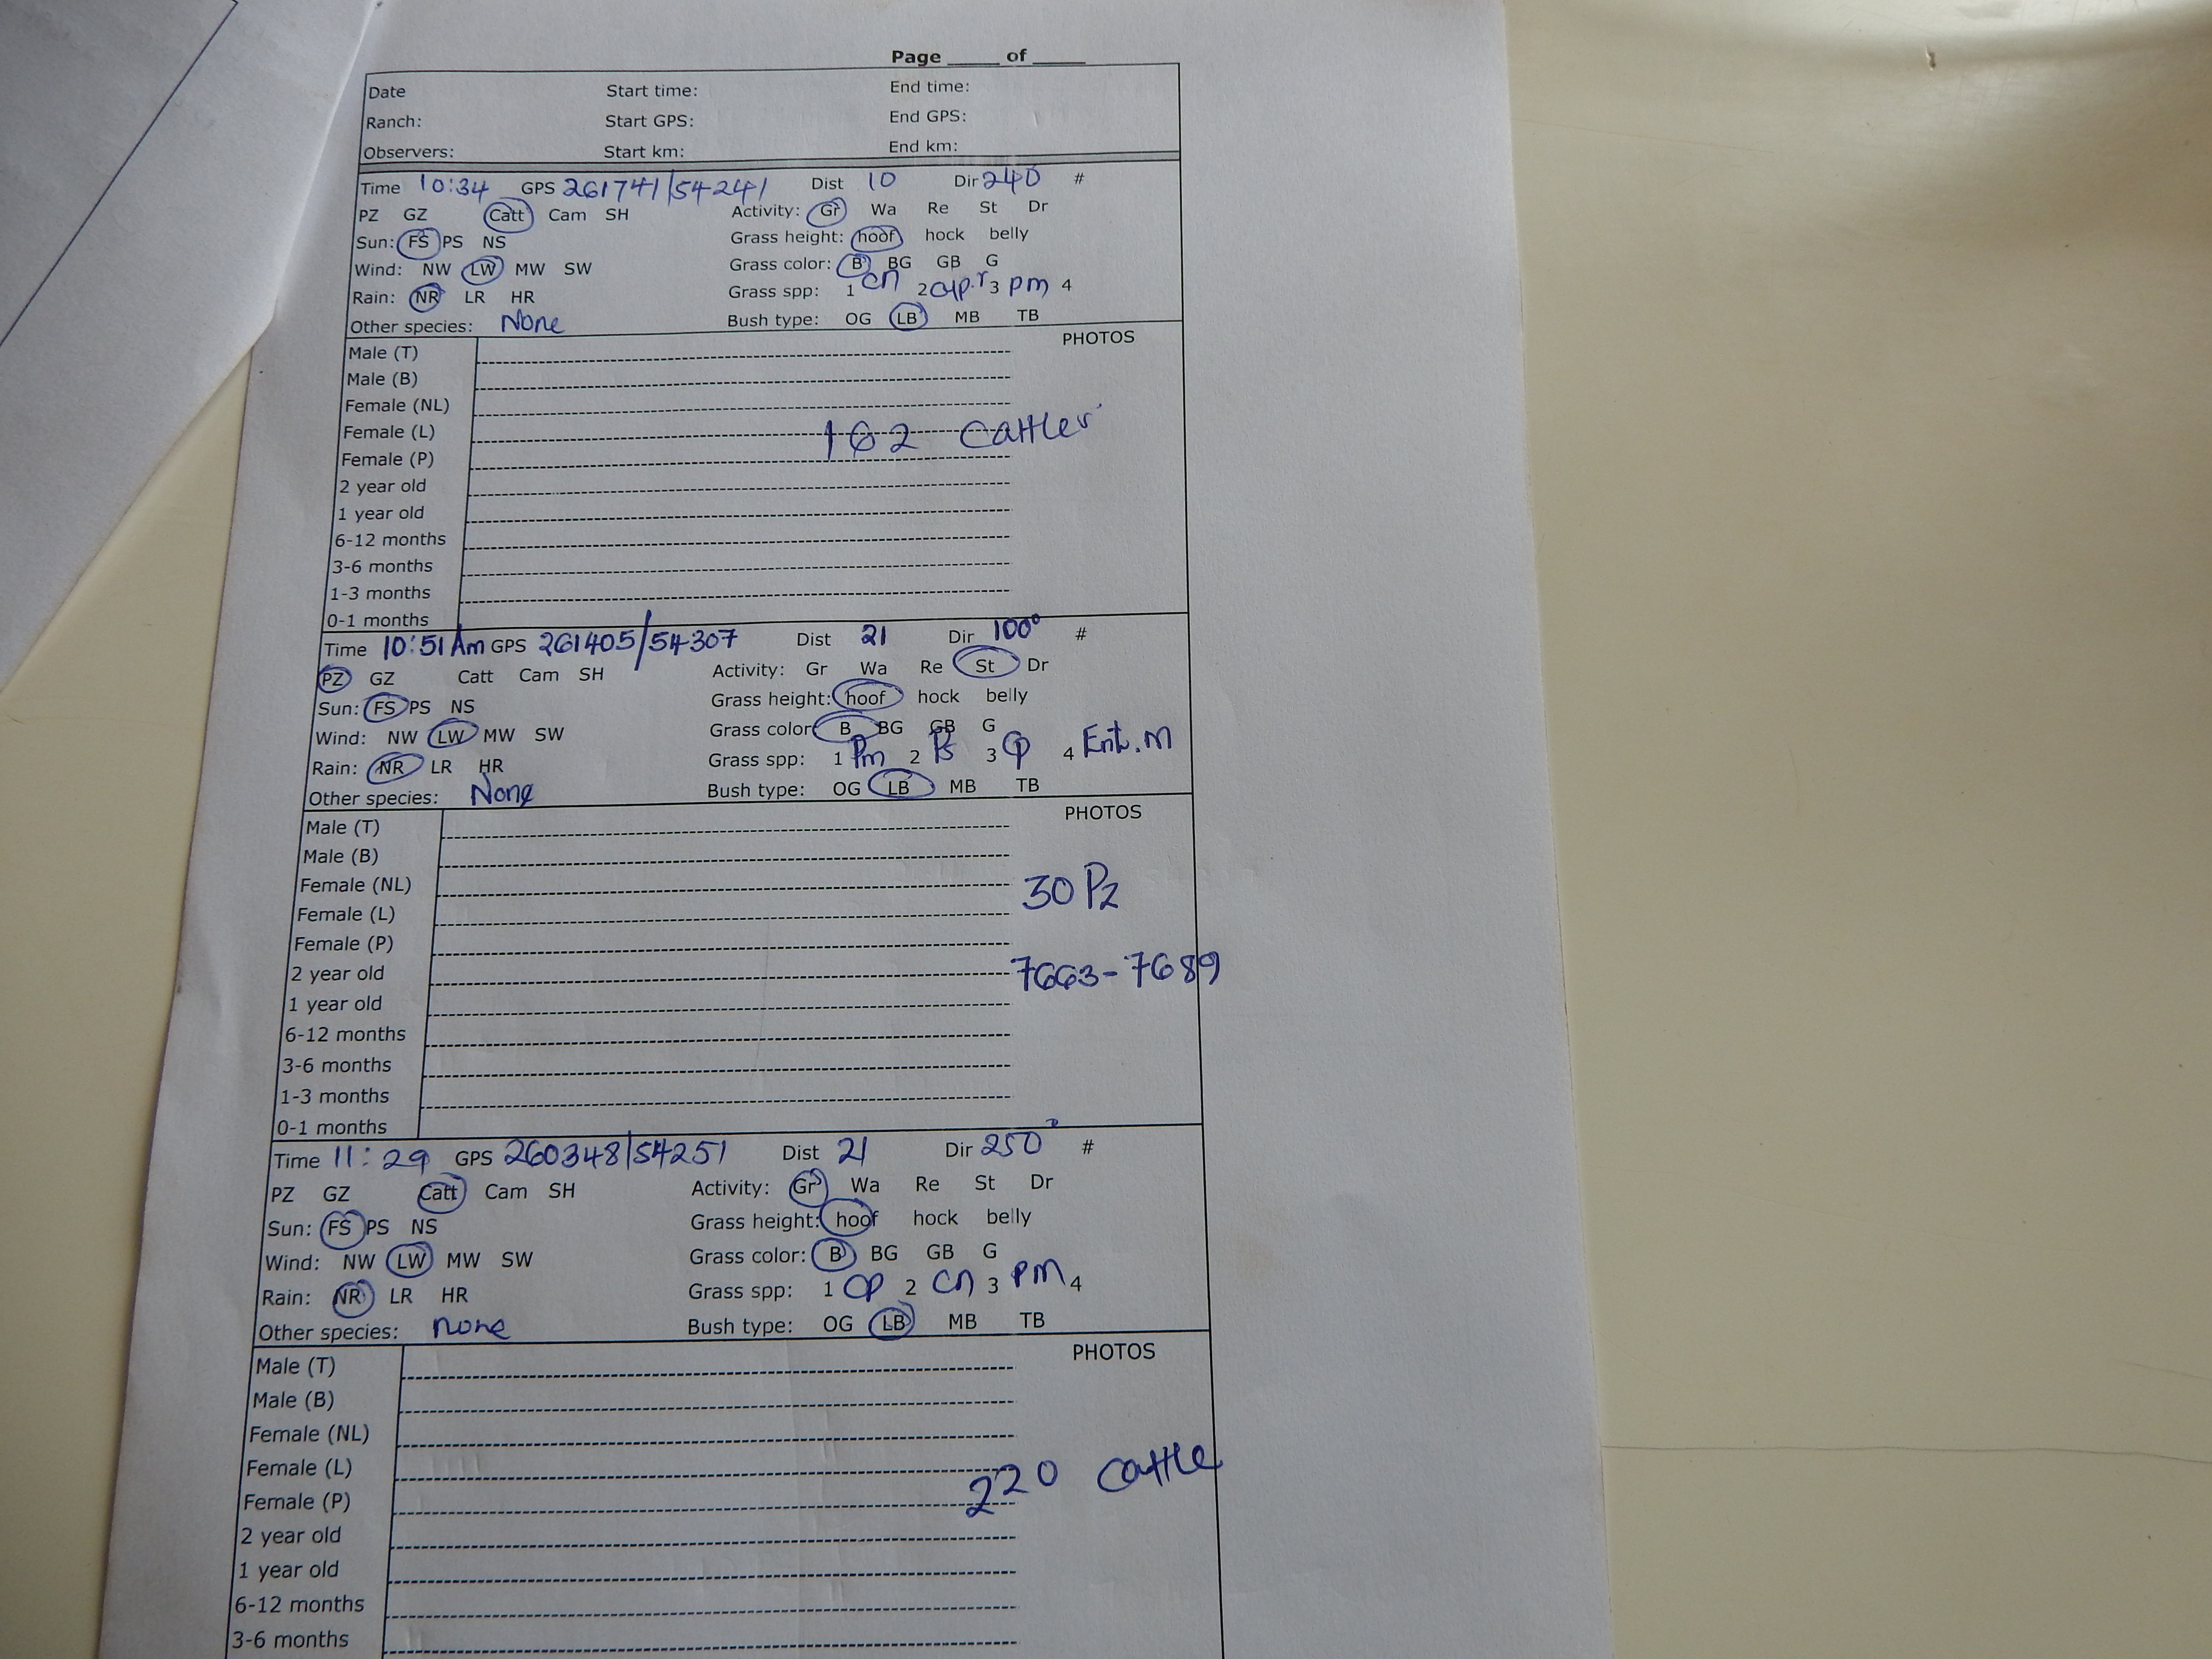 Page _____ of _____
Date Start time: End time:
Ranch: Start GPS: End GPS:
Observers: Start km: End km:
Time 10:34 GPS 261741/54241 Dist 10 Dir 240 #
PZ GZ Catt Cam SH Activity: Gr Wa Re St Dr
Sun: FS PS NS Grass height: hoof hock belly
Wind: NW LW MW SW Grass color: B BG GB G
Rain: NR LR HR Grass spp: 1 cn 2 3 pm 4
Other species: None Bush type: OG LB MB TB
PHOTOS
Male (T)
Male (B)
Female (NL)
Female (L) 162
Female (P)
2 year old
1 year old
6-12 months
3-6 months
1-3 months
0-1 months
Time 10:51 Am GPS 261405/54307 Dist 21 Dir 100° #
PZ GZ Catt Cam SH Activity: Gr Wa Re St Dr
Sun: FS PS NS Grass height: hoof hock belly
Wind: NW LW MW SW Grass color: B BG GB G
Rain: NR LR HR Grass spp: 1 Pm 2 Ps 3 Cp 4 Ent.m
Other species: None Bush type: OG LB MB TB
PHOTOS
Male (T)
Male (B)
Female (NL) 30 Pz
Female (L)
Female (P)
2 year old 7663-7689
1 year old
6-12 months
3-6 months
1-3 months
0-1 months
Time 11:29 GPS 260348/54251 Dist 21 Dir 250° #
PZ GZ Catt Cam SH Activity: Gr Wa Re St Dr
Sun: FS PS NS Grass height: hoof hock belly
Wind: NW LW MW SW Grass color: B BG GB G
Rain: NR LR HR Grass spp: 1 Cp 2 Cn 3 pm 4
Other species: none Bush type: OG LB MB TB
PHOTOS
Male (T)
Male (B)
Female (NL)
Female (L) 220 cattle
Female (P)
2 year old
1 year old
6-12 months
3-6 months